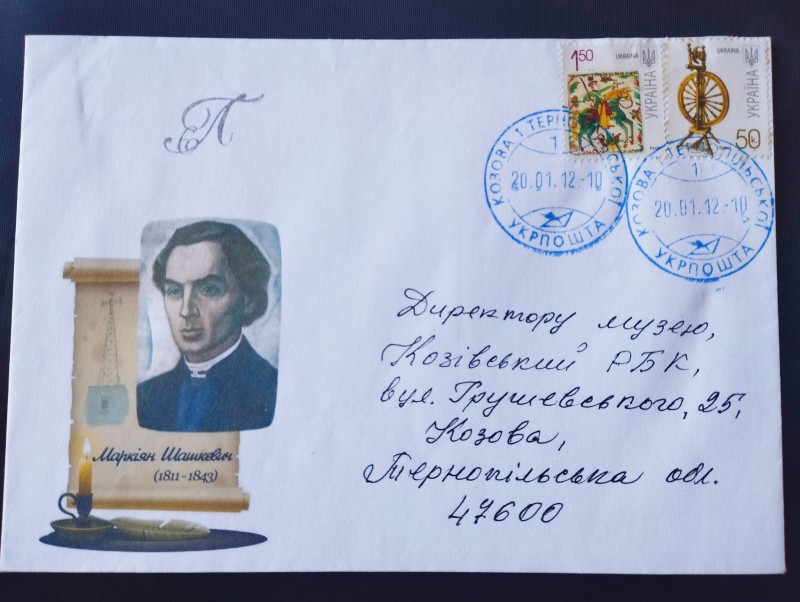 П
1.50
UKRAINA
УКРАЇНА
UKRAINA
УКРАЇНА
50 к.
КОЗОВА 1 ТЕРНОПІЛЬСЬКОЇ
1
20.01.12.-10
УКРПОШТА
КОЗОВА 1 ТЕРНОПІЛЬСЬКОЇ
1
20.01.12.-10
УКРПОШТА
Директору музею,
Козівський РБК,
вул. Грушевського, 25,
Козова,
Тернопільська обл.
47600
Маркіян Шашкевич
(1811-1843)